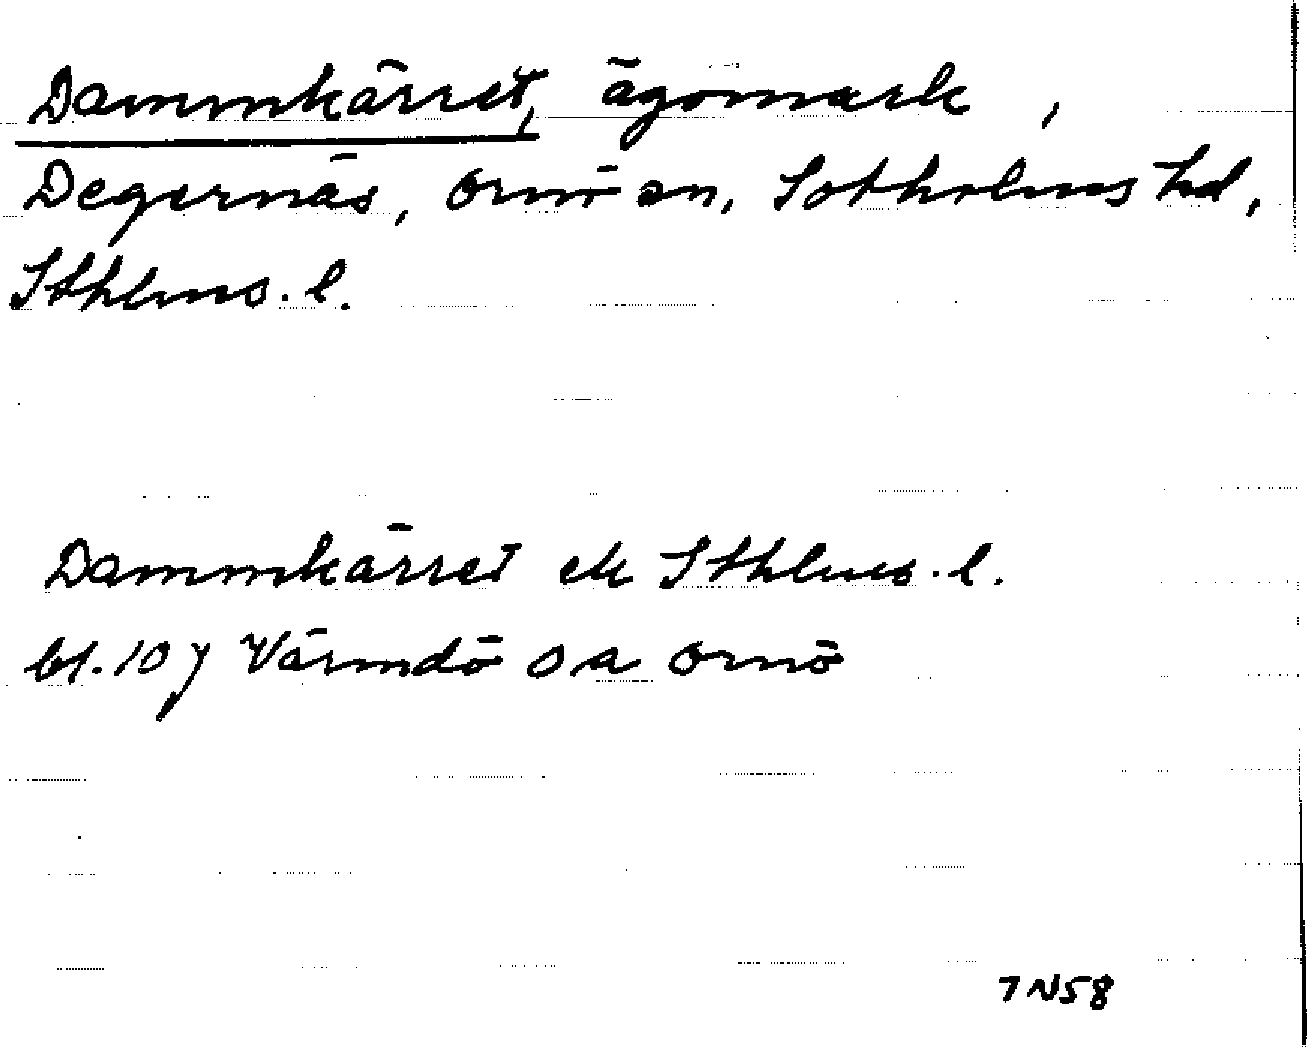 Dammkärret, ägomark,
Degernäs, Ornö sn, Sotholms hd,
Sthlms. l.
Dammkärret ek Sthlms. l.
bl. 107 Värmdö o a Ornö
7N58